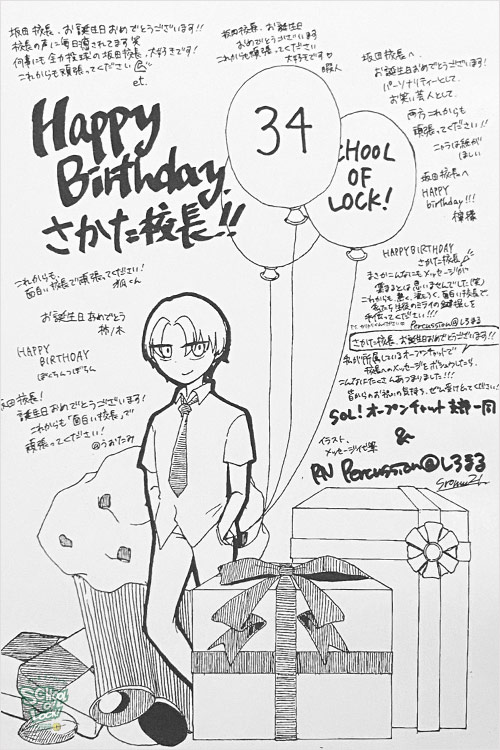 坂田校長、お誕生日おめでとうございます!!
校長の声に毎日癒されてます笑
何事にも全力投球の坂田校長、大好きです!
これからも頑張ってください
et.
坂田校長、お誕生日
おめでとうございます
これからも頑張ってください
大好きです♡
暇人
坂田校長へ
お誕生日おめでとうございます!
パーソナリティーとして、
お笑い芸人として、
両方これからも
頑張ってください!!
坂田校長へ
HAPPY
birthday!!!
Happy
Birthday
さかた校長!!
34
SCHOOL
OF
LOCK!
これからも、
面白い校長で頑張ってください!
お誕生日おめでとう
HAPPY
BIRTHDAY
ぽくちんつぽちん
坂田校長!
誕生日おめでとうございます!
これからも"面白い校長"で
頑張ってください!
@うおたみ
HAPPY BIRTHDAY
さかた校長
まさかこんなにもメッセージが
集まるとは思いませんでした(笑)
これからも、熱く、楽しく、面白い校長で、
私たち生徒のミライの鍵探しを
手伝ってください!!!
Percussion@しろまる
さかた校長、お誕生日おめでとうございます!!
私が所属しているオープンチャットで
校長へのメッセージをボシュウしたら、
こんなにもたくさんあつまりました!!!
皆からのお祝いの気持ち、ぜひ受けとってください!
SOL!オープンチャット支部一同
&
イラスト、
メッセージ代筆
RN Percussion@しろまる
SCHOOL
OF
LOCK!